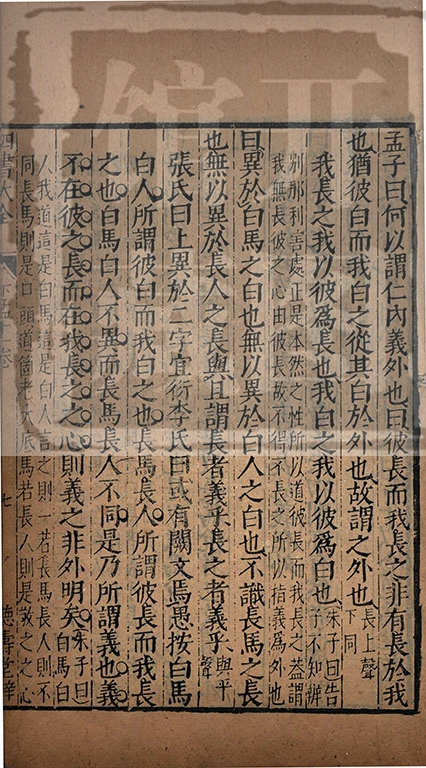 孟子曰何以謂仁內義外也曰彼長而我長之非有長於我
也猶彼白而我白之從其白於外也故謂之外也長上聲下同
我長之我以彼爲長也我白之我以彼爲白也朱子曰告子不知辨
別那利害處正是本然之性所以道彼長而我長之葢謂
我無長彼之心由彼長故不得不長之所以指義爲外也
曰異於白馬之白也無以異於白人之白也不識長馬之長
也無以異於長人之長與且謂長者義乎長之者義乎與平聲
張氏曰上異於二字宜衍李氏曰或有闕文焉愚按白馬
白人所謂彼白而我白之也長馬長人所謂彼長而我長
之也白馬白人不異而長馬長人不同是乃所謂義也義
不在彼之長而在我長之之心則義之非外明矣朱子曰白馬白
人我道這是白馬這是白人言之則一若長馬長人則不
同長馬則是口頭道箇老大底馬若長人則是敬之之心
四書大全
下孟十一卷
七
德壽堂梓